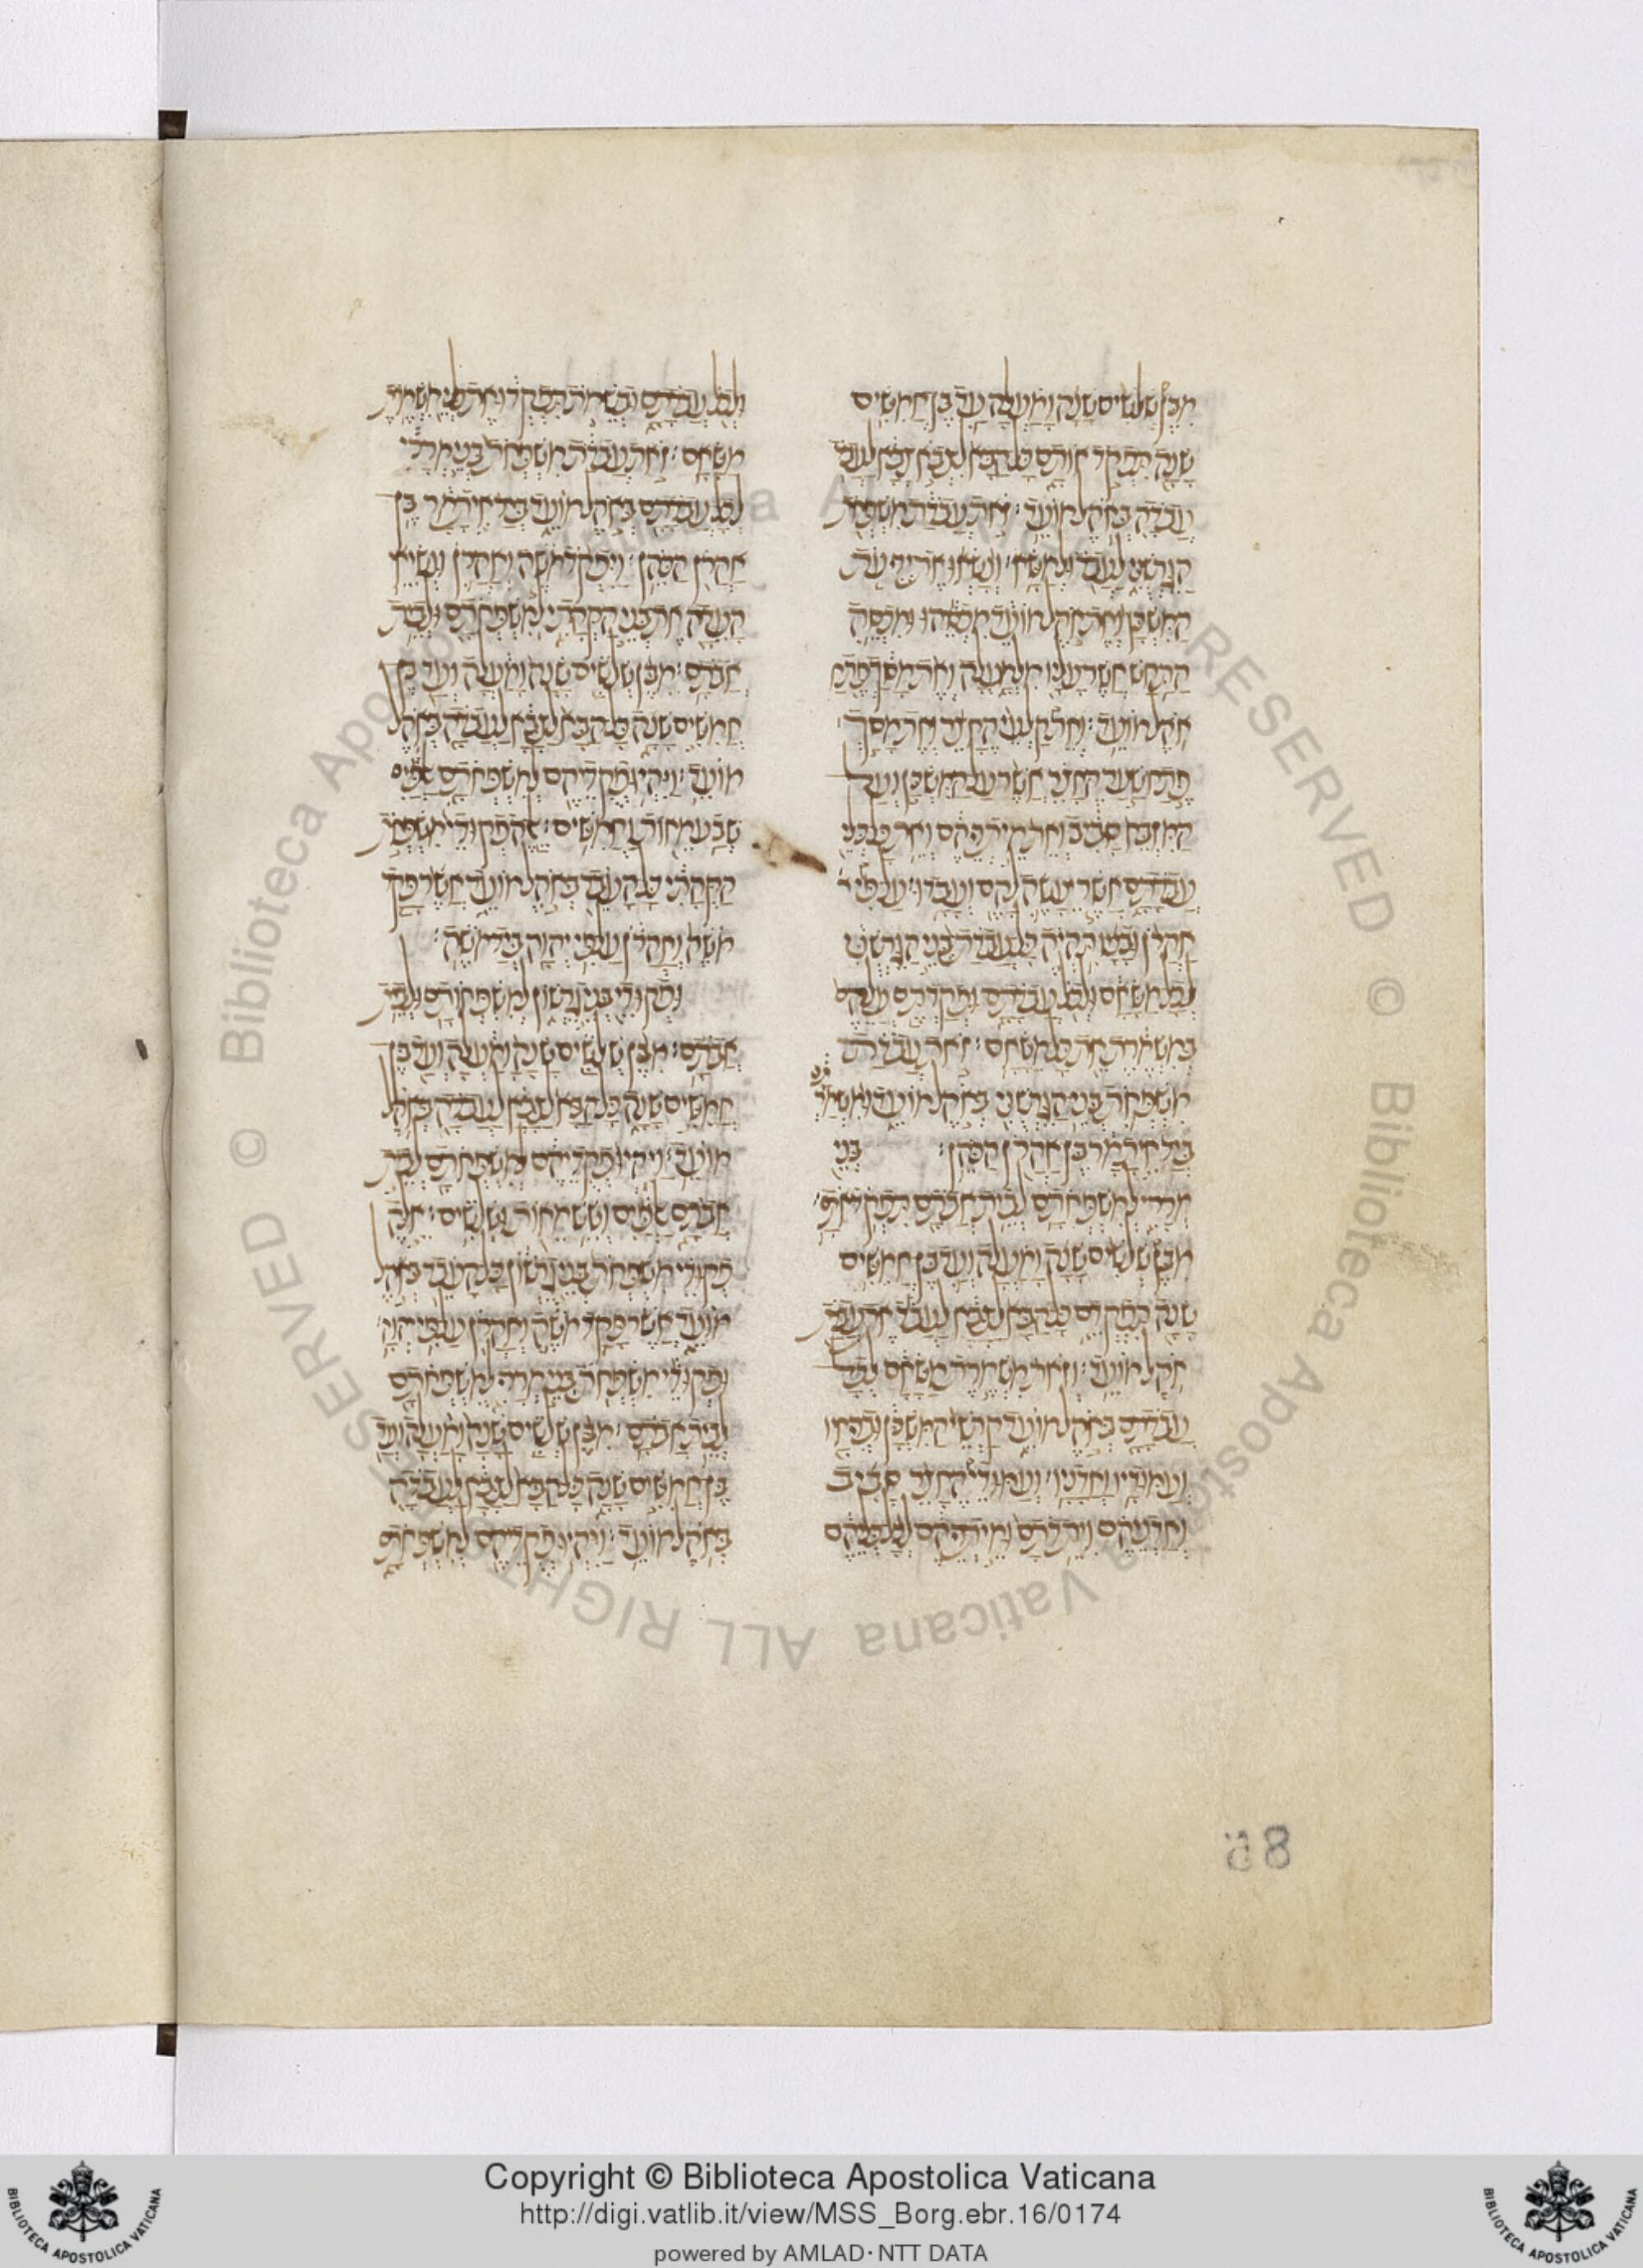 מבן שלשים שנה ומעלה עד בן חמשים
שנה תפקד אותם כל הבא לצבא צבא לעבד
עבדה באהל מועד: זאת עבדת משפחת
הגרשני לעבד ולמשא: ונשאו את יריעת
המשכן ואת אהל מועד מכסהו ומכסה
התחש אשר עליו מלמעלה ואת מסך פתח
אהל מועד: ואת קלעי החצר ואת מסך
פתח שער החצר אשר על המשכן ועל
המזבח סביב ואת מיתריהם ואת כל כלי
עבדתם אשר יעשה להם ועבדו: על פי
אהרן ובניו תהיה כל עבדת בני הגרשני
לכל משאם ולכל עבדתם ופקדתם עלהם
במשמרת את כל משאם: זאת עבדת
משפחת בני הגרשני באהל מועד ומשמרתם
ביד איתמר בן אהרן הכהן: בני
מררי למשפחתם לבית אבתם תפקד אתם:
מבן שלשים שנה ומעלה ועד בן חמשים
שנה תפקדם כל הבא לצבא לעבד את עבדת
אהל מועד: וזאת משמרת משאם לכל
עבדתם באהל מועד קרשי המשכן ובריחיו
ועמודיו ואדניו: ועמודי החצר סביב
ואדניהם ויתדתם ומיתריהם לכל כליהם
ולכל עבדתם ובשמת תפקדו את כלי משמרת
משאם: זאת עבדת משפחת בני מררי
לכל עבדתם באהל מועד ביד איתמר בן
אהרן הכהן: ויפקד משה ואהרן ונשיאי
העדה את בני הקהתי למשפחתם ולבית
אבתם: מבן שלשים שנה ומעלה ועד בן
חמשים שנה כל הבא לצבא לעבדה באהל
מועד: ויהיו פקדיהם למשפחתם אלפים
שבע מאות וחמשים: אלה פקודי משפחת
הקהתי כל העבד באהל מועד אשר פקד
משה ואהרן על פי יהוה ביד משה:
ופקודי בני גרשון למשפחותם ולבית
אבתם: מבן שלשים שנה ומעלה ועד בן
חמשים שנה כל הבא לצבא לעבדה באהל
מועד: ויהיו פקדיהם למשפחתם לבית
אבתם אלפים ושש מאות ושלשים: אלה
פקודי משפחת בני גרשון כל העבד באהל
מועד אשר פקד משה ואהרן על פי יהוה:
ופקודי משפחת בני מררי למשפחתם
לבית אבתם: מבן שלשים שנה ומעלה ועד
בן חמשים שנה כל הבא לצבא לעבדה
באהל מועד: ויהיו פקדיהם למשפחתם
58
Copyright © Biblioteca Apostolica Vaticana
http://digi.vatlib.it/view/MSS_Borg.ebr.16/0174
powered by AMLAD · NTT DATA